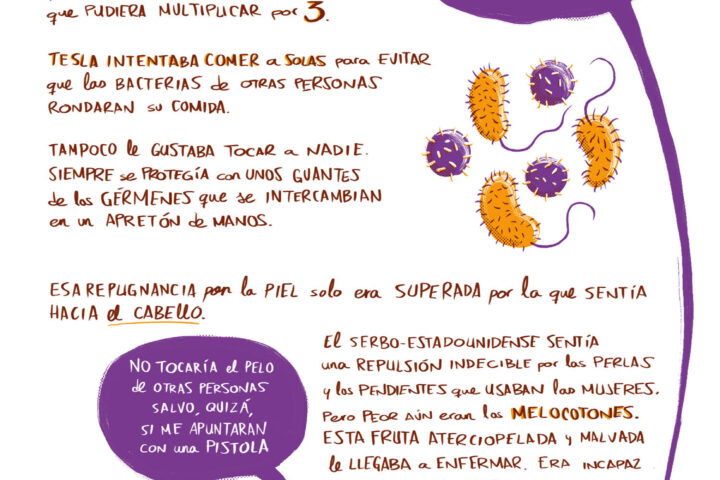 que PUDIERA MULTIPLICAR por 3.
TESLA INTENTABA COMER a SOLAS para EVITAR
que las BACTERIAS de OTRAS PERSONAS
RONDARAN su COMIDA.
TAMPOCO le GUSTABA TOCAR a NADIE.
SIEMPRE se PROTEGÍA con UNOS GUANTES
de los GÉRMENES que se INTERCAMBIAN
en un APRETÓN de MANOS.
ESA REPUGNANCIA por la PIEL solo era SUPERADA por la que SENTÍA
HACIA el CABELLO.
NO TOCARÍA el PELO
de OTRAS PERSONAS
SALVO, QUIZÁ,
SI ME APUNTARAN
CON una PISTOLA
El SERBO-ESTADOUNIDENSE SENTÍA
una REPULSIÓN INDECIBLE por las PERLAS
y los PENDIENTES que USABAN las MUJERES.
Pero PEOR AÚN eran los MELOCOTONES.
ESTA FRUTA ATERCIOPELADA y MALVADA
le LLEGABA a ENFERMAR. ERA INCAPAZ